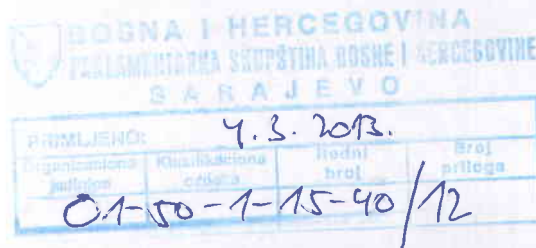 BOSNA I HERCEGOVINA
PARLAMENTARNA SKUPŠTINA BOSNE I HERCEGOVINE
SARAJEVO
PRIMLJENO: 4.3.2013.
Organizaciona jedinica
Klasifikaciona oznaka
Redni broj
Broj priloga
01-50-1-15-40/12